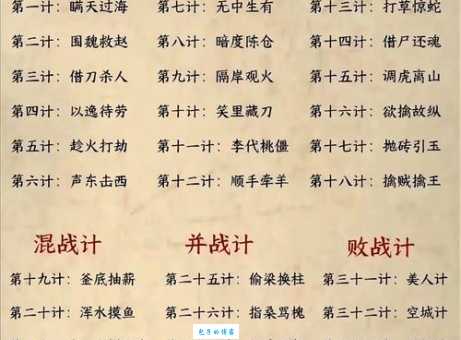 第一计：瞒天过海 第七计：无中生有 第十三计：打草惊蛇
第二计：围魏救赵 第八计：暗度陈仓 第十四计：借尸还魂
第三计：借刀杀人 第九计：隔岸观火 第十五计：调虎离山
第四计：以逸待劳 第十计：笑里藏刀 第十六计：欲擒故纵
第五计：趁火打劫 第十一计：李代桃僵 第十七计：抛砖引玉
第六计：声东击西 第十二计：顺手牵羊 第十八计：擒贼擒王
混战计 并战计 败战计
第十九计：釜底抽薪 第二十五计：偷梁换柱 第三十一计：美人计
第二十计：浑水摸鱼 第二十六计：指桑骂槐 第三十二计：空城计